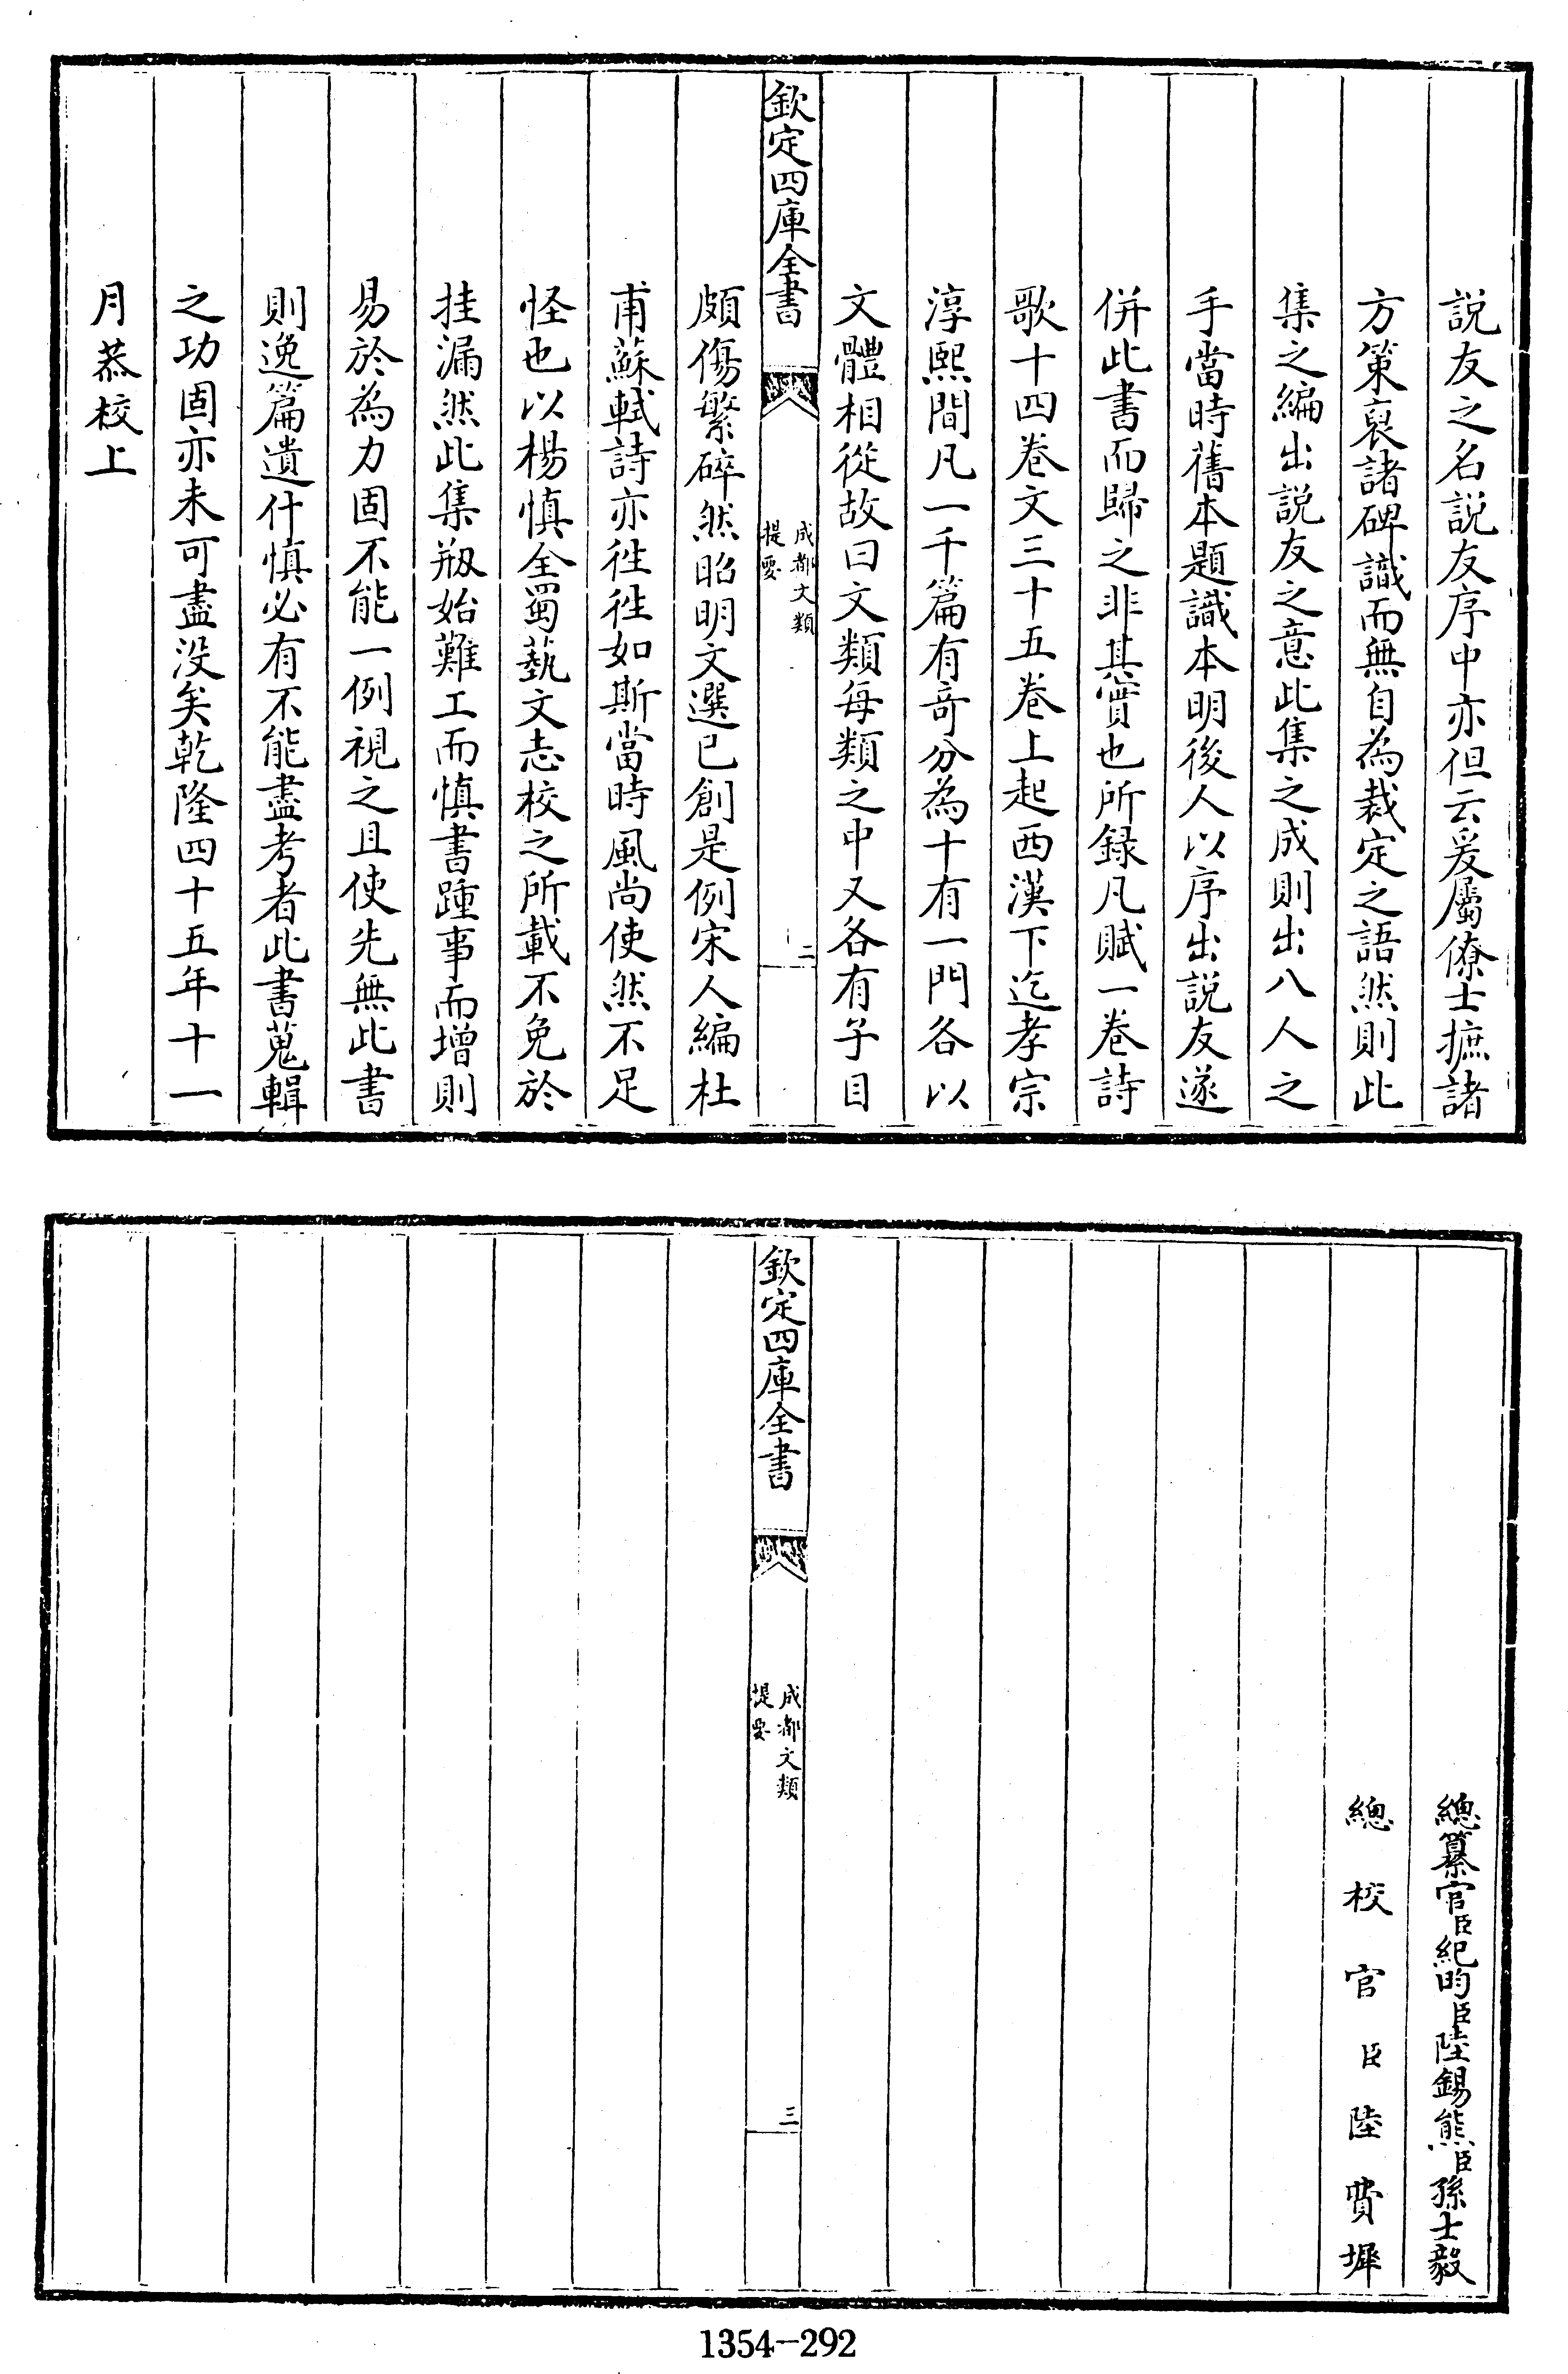 說友之名說友序中亦但云爰屬僚士摭諸
方策裒諸碑識而無自為裁定之語然則此
集之編出說友之意此集之成則出八人之
手當時舊本題識本明後人以序出說友遂
併此書而歸之非其實也所録凡賦一卷詩
歌十四卷文三十五卷上起西漢下迄孝宗
淳熙間凡一千篇有奇分為十有一門各以
文體相從故曰文類每類之中又各有子目
欽定四庫全書
成都文類
提要
二
頗傷繁碎然昭明文選已創是例宋人編杜
甫蘇軾詩亦徃徃如斯當時風尚使然不足
怪也以楊慎全蜀藝文志校之所載不免於
挂漏然此集剏始難工而慎書踵事而增則
易於為力固不能一例視之且使先無此書
則逸篇遺什慎必有不能盡考者此書蒐輯
之功固亦未可盡没矣乾隆四十五年十一
月恭校上
總纂官臣紀昀臣陸錫熊臣孫士毅
總校官臣陸費墀
欽定四庫全書
成都文類
提要
三
1354-292